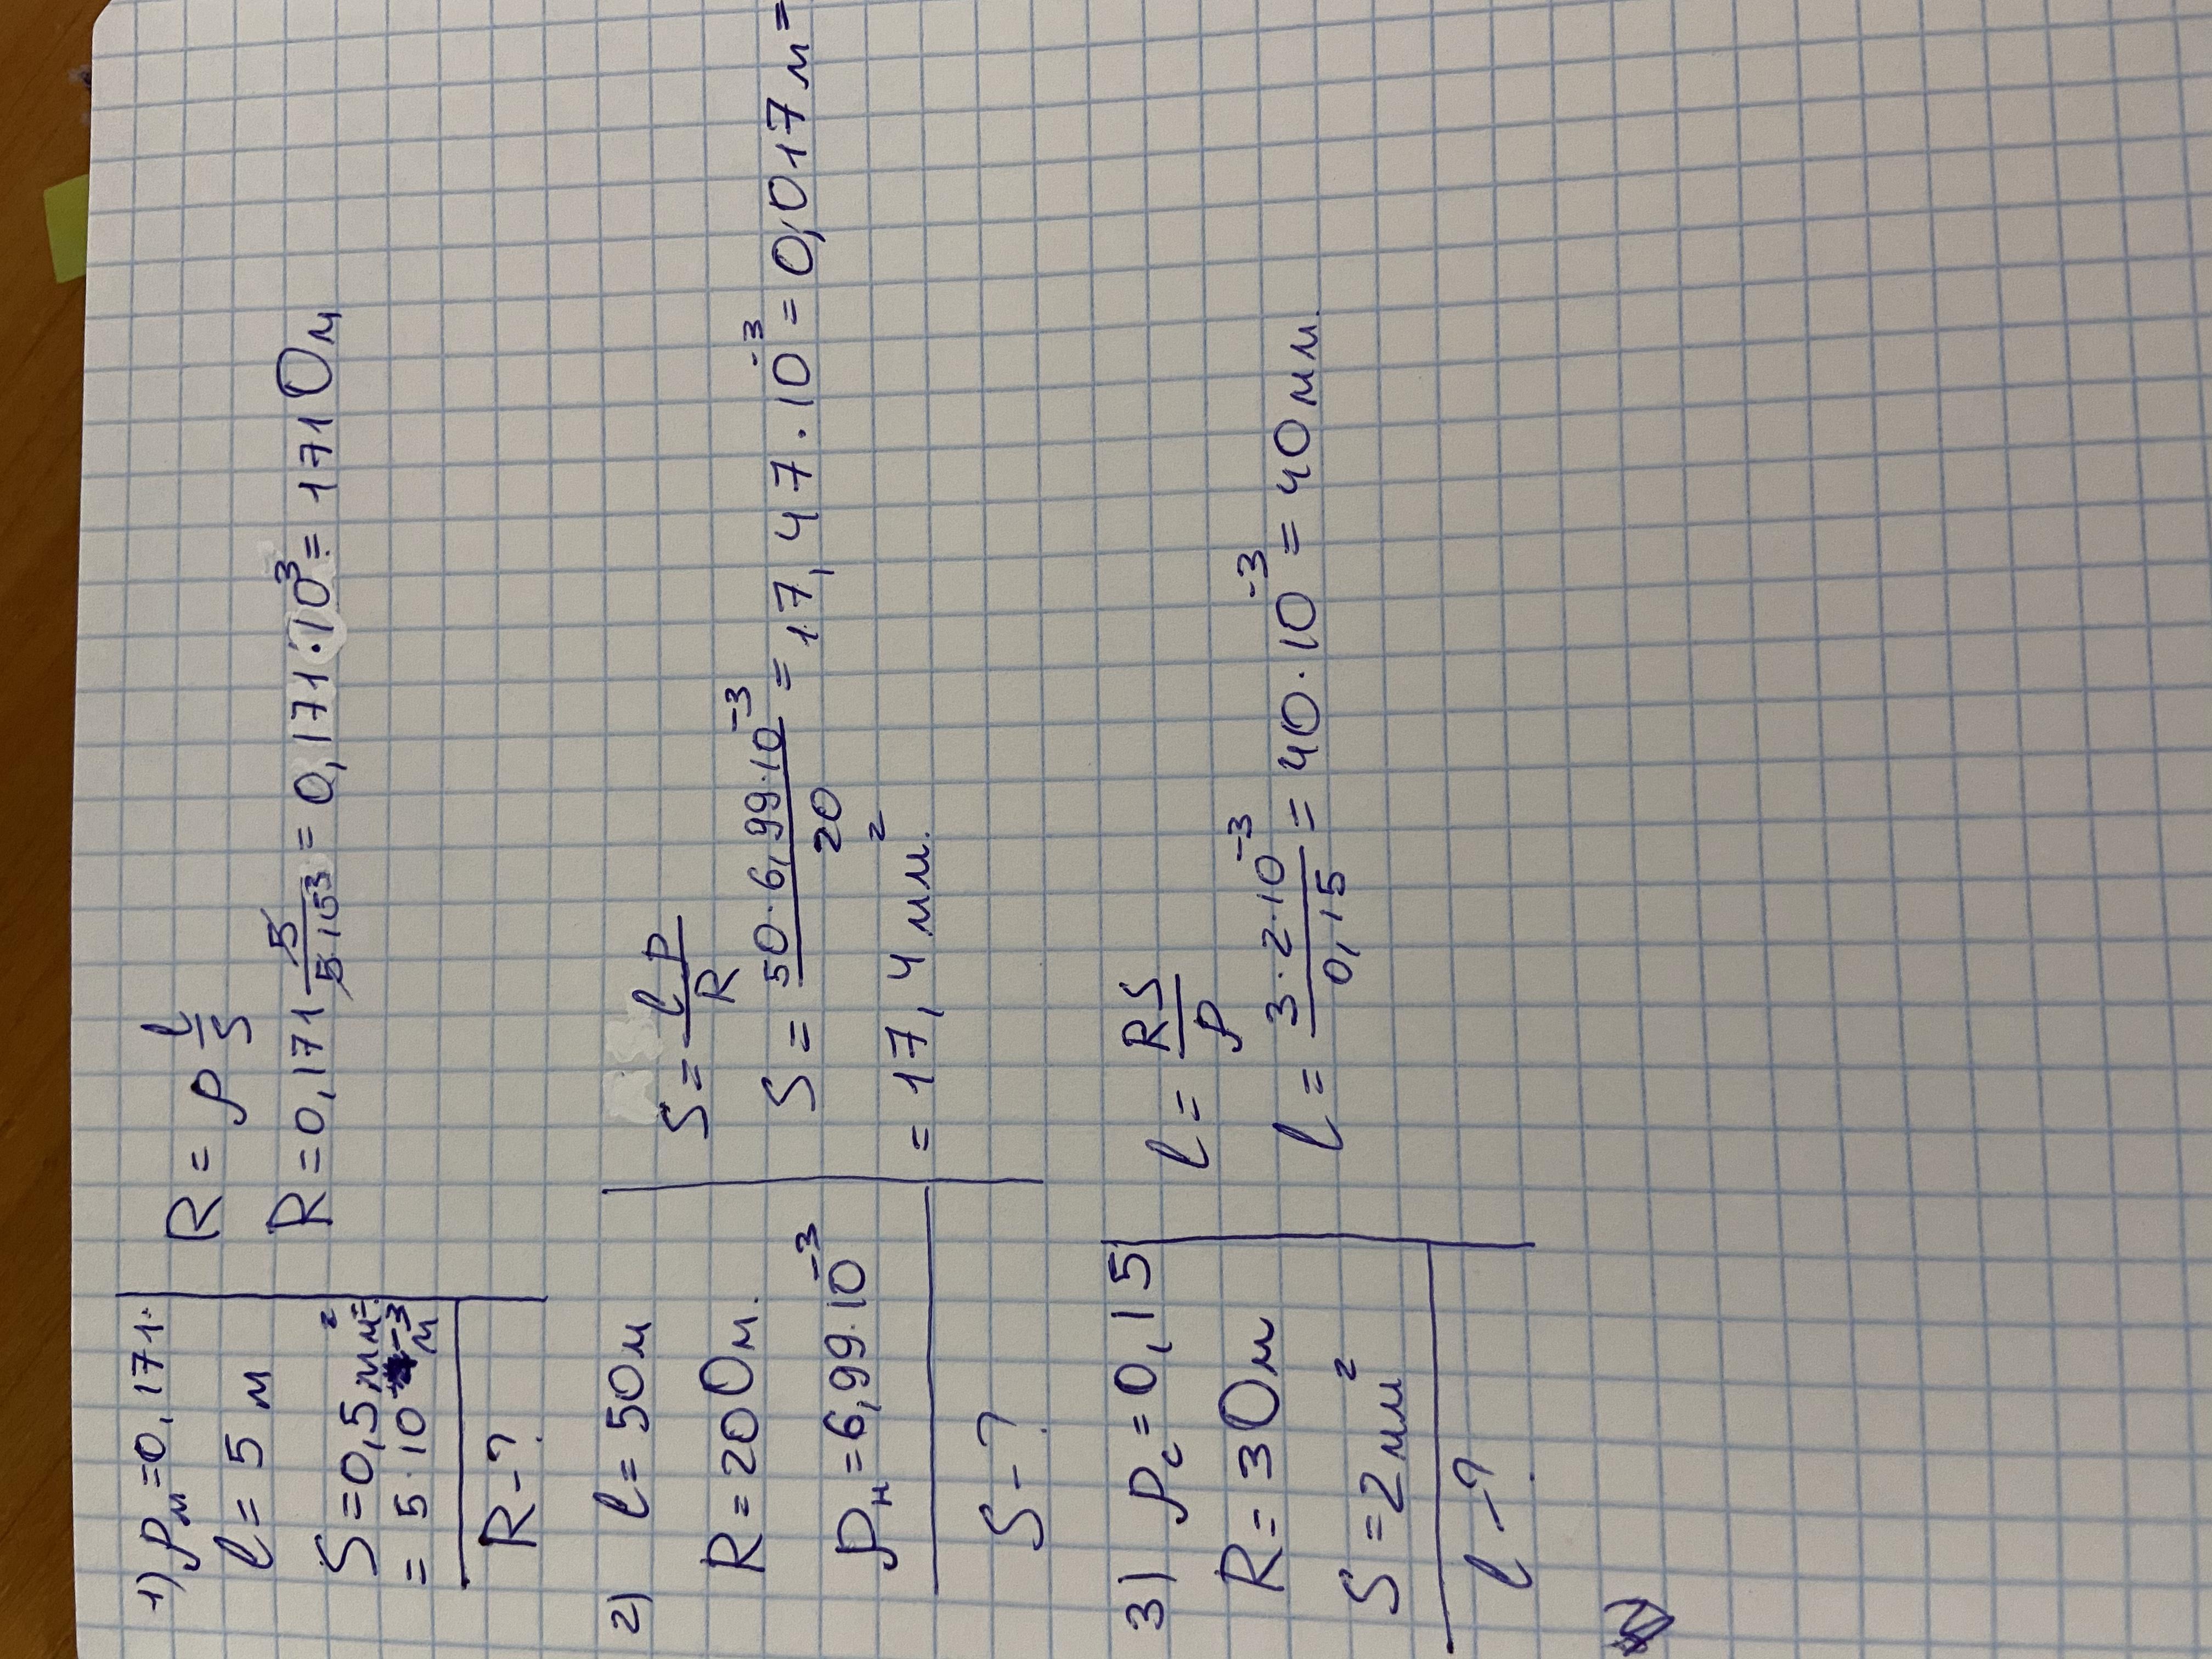 1) ρм = 0,171.
l = 5 м
S = 0,5 мм² =
= 5 · 10⁻³ м
R - ?
R = ρ l/S
R = 0,171 5/(5·10⁻³) = 0,171 · 10³ = 171 Ом
2) l = 50 м
R = 20 Ом.
ρн = 6,99 · 10⁻³
S - ?
S = lρ/R
S = (50 · 6,99 · 10⁻³)/20 = 17,47 · 10⁻³ = 0,017 м =
= 17,4 мм².
3) ρс = 0,15
R = 3 Ом
S = 2 мм²
l - ?
l = RS/ρ
l = (3 · 2 · 10⁻³)/0,15 = 40 · 10⁻³ = 40 мм.